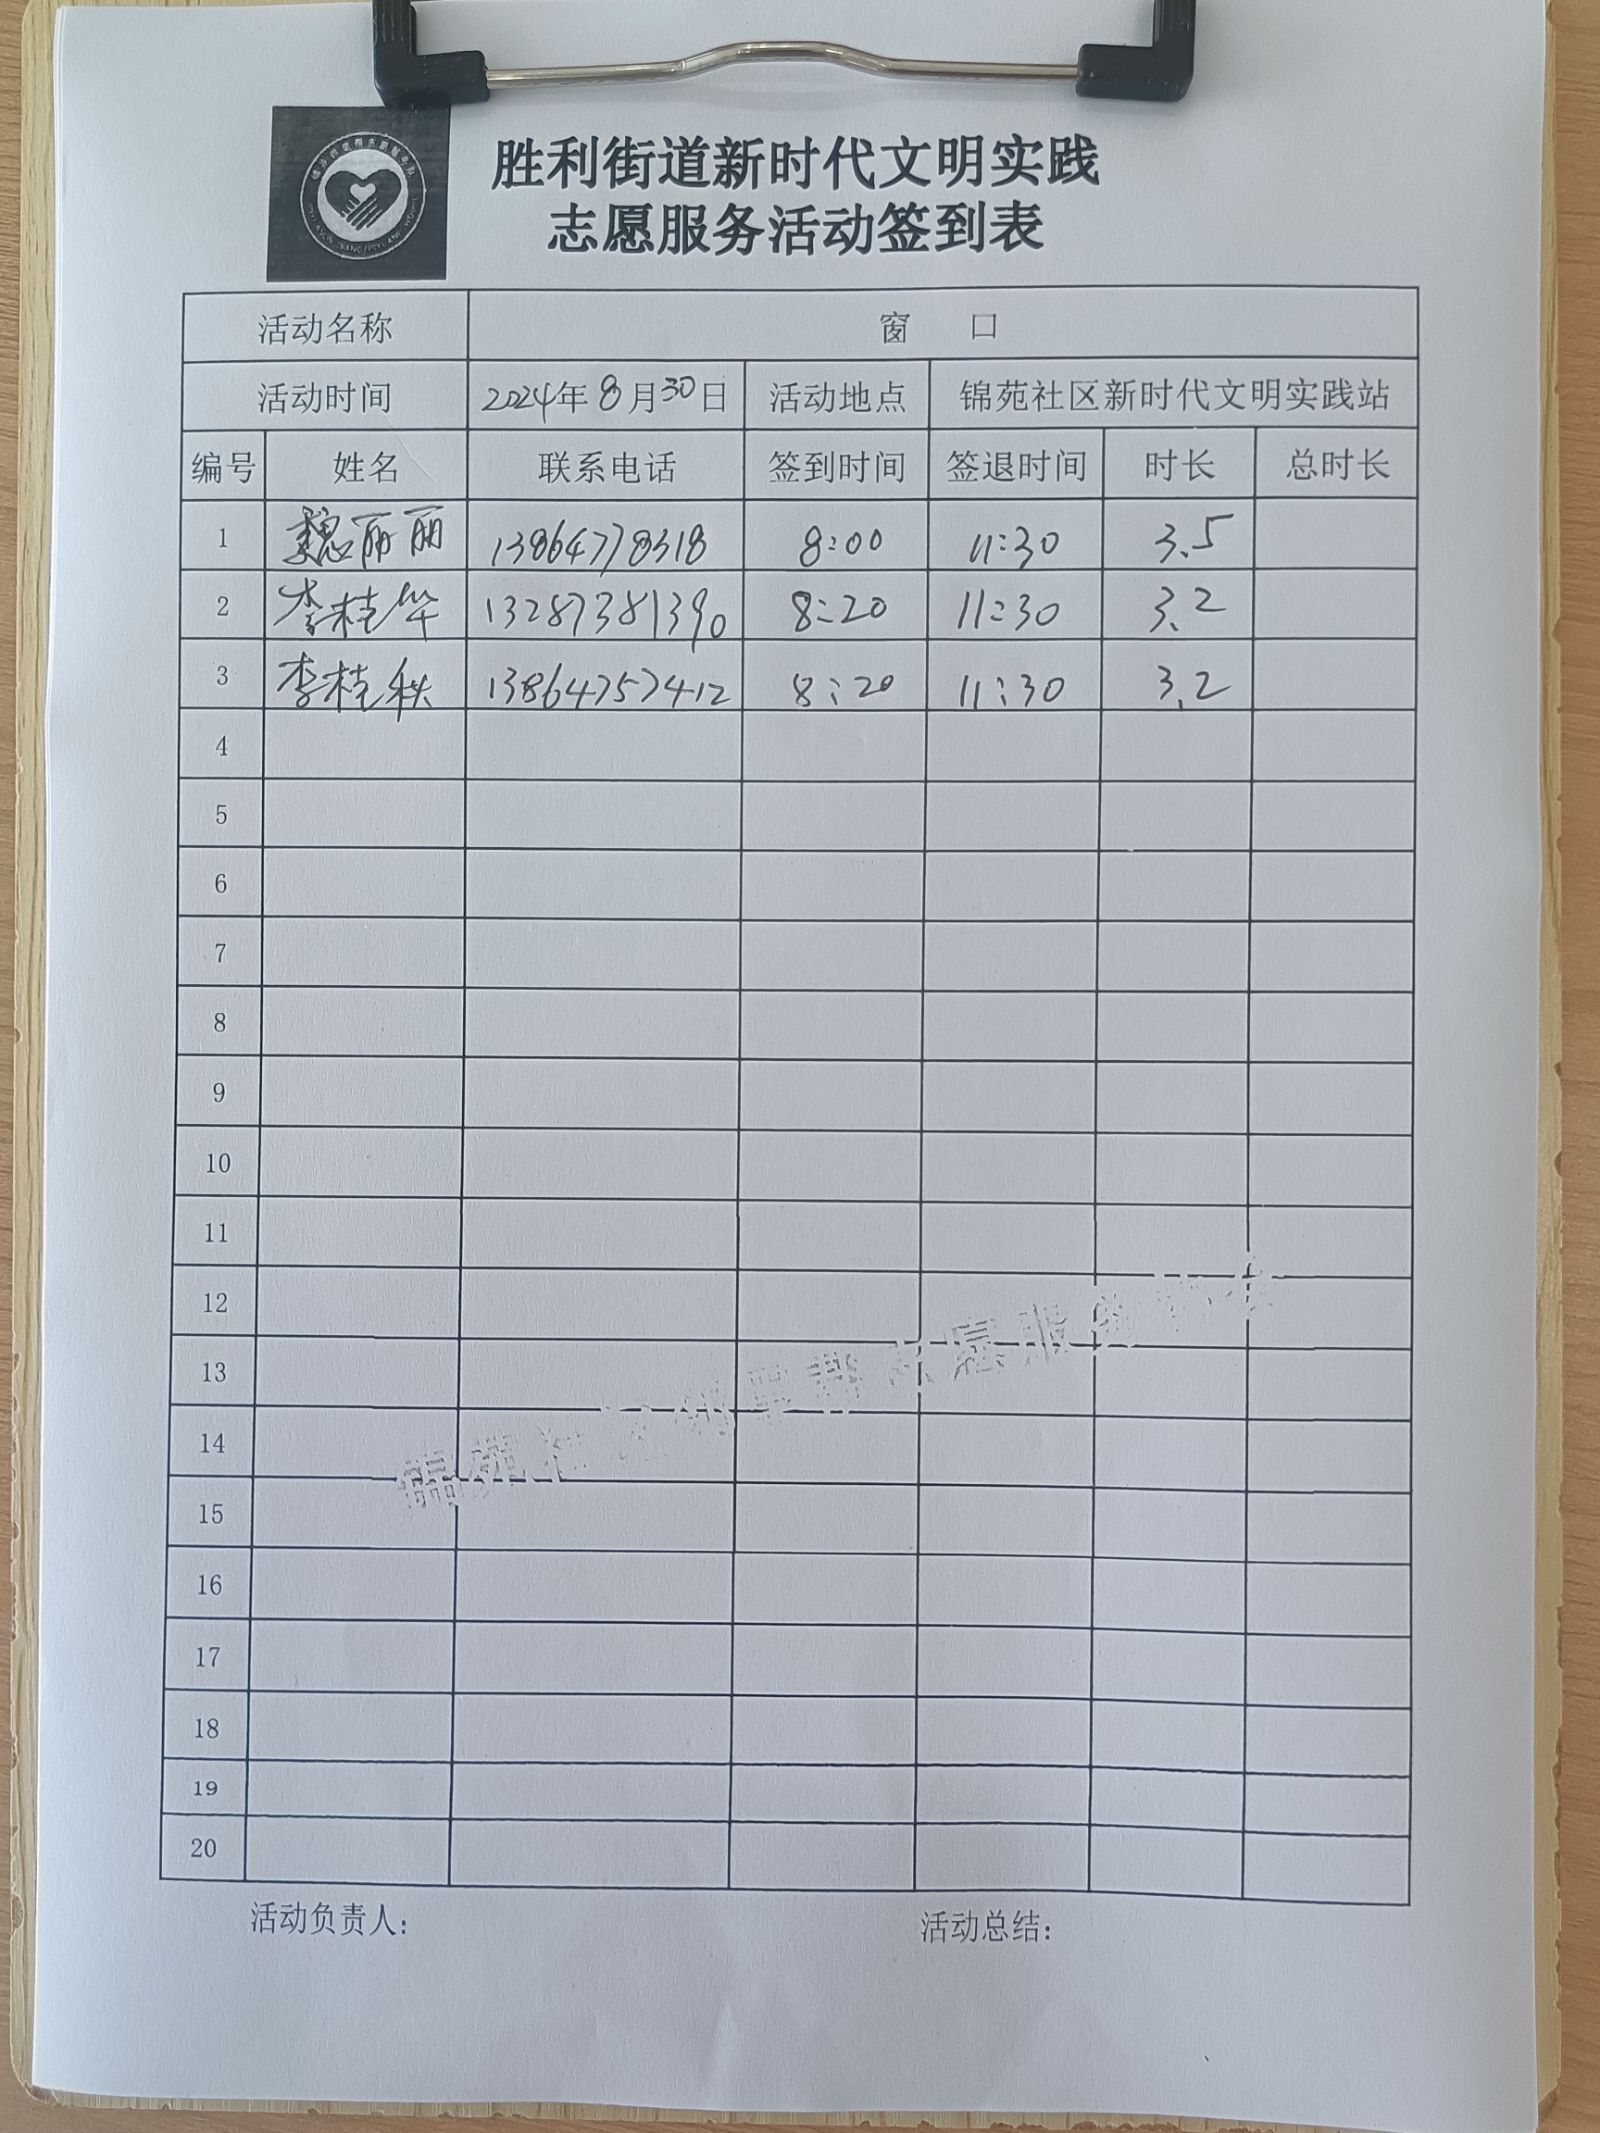 胜利街道新时代文明实践
志愿服务活动签到表
活动名称 窗 口
活动时间 2024年8月30日 活动地点 锦苑社区新时代文明实践站
编号 姓名 联系电话 签到时间 签退时间 时长 总时长
1 魏丽丽 13864778318 8:00 11:30 3.5
2 李桂华 13287381390 8:20 11:30 3.2
3 李桂秋 13864757412 8:20 11:30 3.2
4
5
6
7
8
9
10
11
12
13
14
15
16
17
18
19
20
活动负责人: 活动总结: